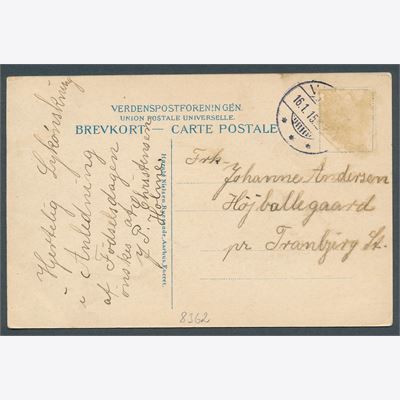 VERDENSPOSTFORENINGEN.
UNION POSTALE UNIVERSELLE.
BREVKORT — CARTE POSTALE
16.1.15
Hjertelig Lykønskning
i Anledning
af Fødselsdagen
ønskes af
J. P. Christensen
Holme
Frk.
Johanne Andersen
Højballegaard
pr Tranbjerg St.
8362